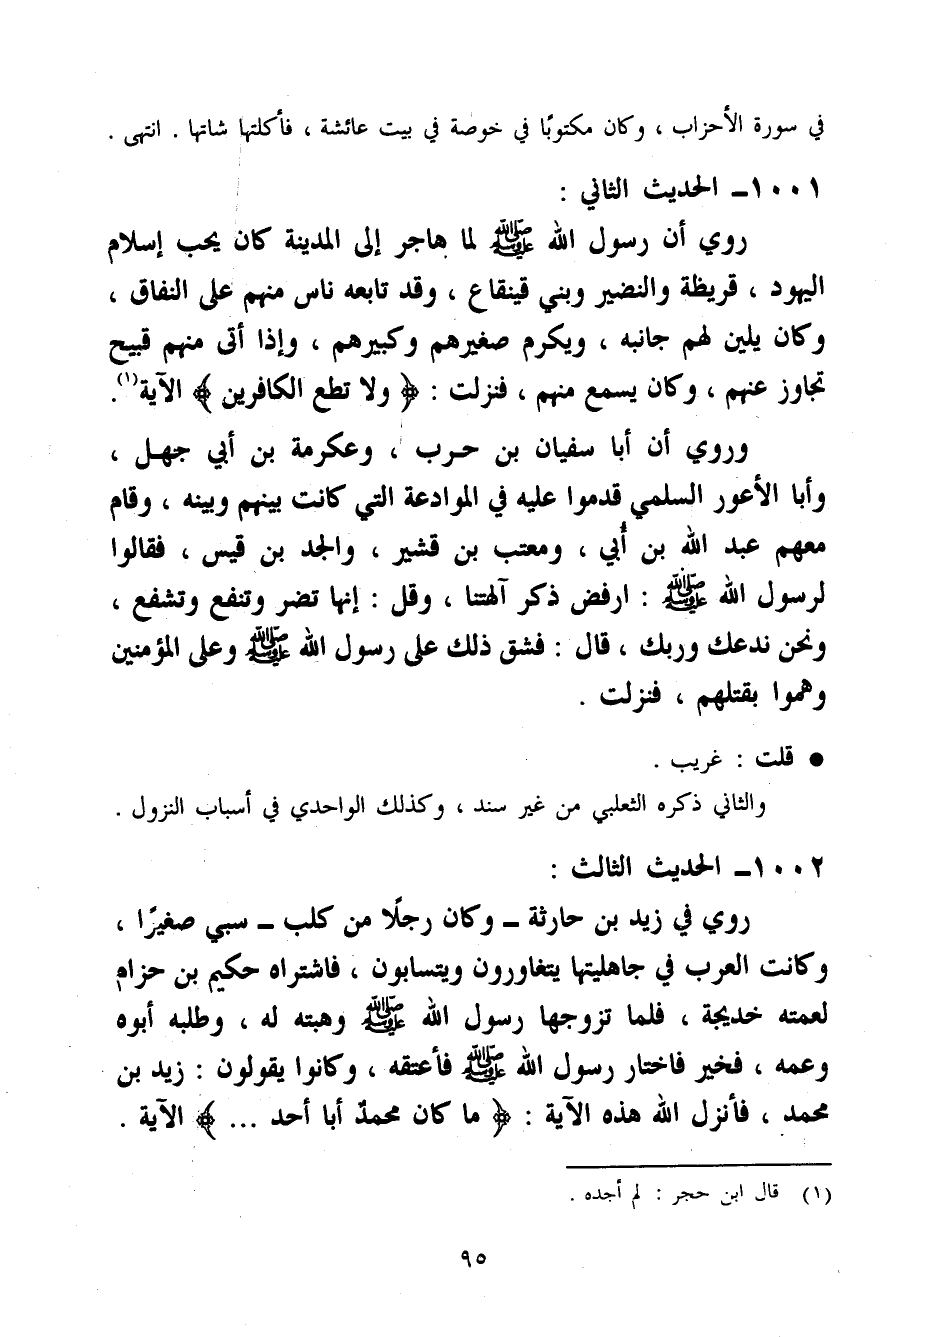 في سورة الأحزاب ، وكان مكتوبًا في خوصة في بيت عائشة ، فأكلتها شاتها . انتهى .
١٠٠١ـ الحديث الثاني :
روي أن رسول الله ﷺ لما هاجر إلى المدينة كان يحب إسلام
اليهود ، قريظة والنضير وبني قينقاع ، وقد تابعه ناس منهم على النفاق ،
وكان يلين لهم جانبه ، ويكرم صغيرهم وكبيرهم ، وإذا أتى منهم قبيح
تجاوز عنهم ، وكان يسمع منهم ، فنزلت : ﴿ ولا تطع الكافرين ﴾ الآية(١).
وروي أن أبا سفيان بن حرب ، وعكرمة بن أبي جهل ،
وأبا الأعور السلمي قدموا عليه في الموادعة التي كانت بينهم وبينه ، وقام
معهم عبد الله بن أُبي ، ومعتب بن قشير ، والجد بن قيس ، فقالوا
لرسول الله ﷺ : ارفض ذكر آلهتنا ، وقل : إنها تضر وتنفع وتشفع ،
ونحن ندعك وربك ، قال : فشق ذلك على رسول الله ﷺ وعلى المؤمنين
وهموا بقتلهم ، فنزلت .
● قلت : غريب .
والثاني ذكره الثعلبي من غير سند ، وكذلك الواحدي في أسباب النزول .
١٠٠٢ـ الحديث الثالث :
روي في زيد بن حارثة ـ وكان رجلًا من كلب ـ سبي صغيرًا ،
وكانت العرب في جاهليتها يتغاورون ويتسابون ، فاشتراه حكيم بن حزام
لعمته خديجة ، فلما تزوجها رسول الله ﷺ وهبته له ، وطلبه أبوه
وعمه ، فخير فاختار رسول الله ﷺ فأعتقه ، وكانوا يقولون : زيد بن
محمد ، فأنزل الله هذه الآية : ﴿ ما كان محمدٌ أبا أحد ... ﴾ الآية .
(١) قال ابن حجر : لم أجده .
٩٥